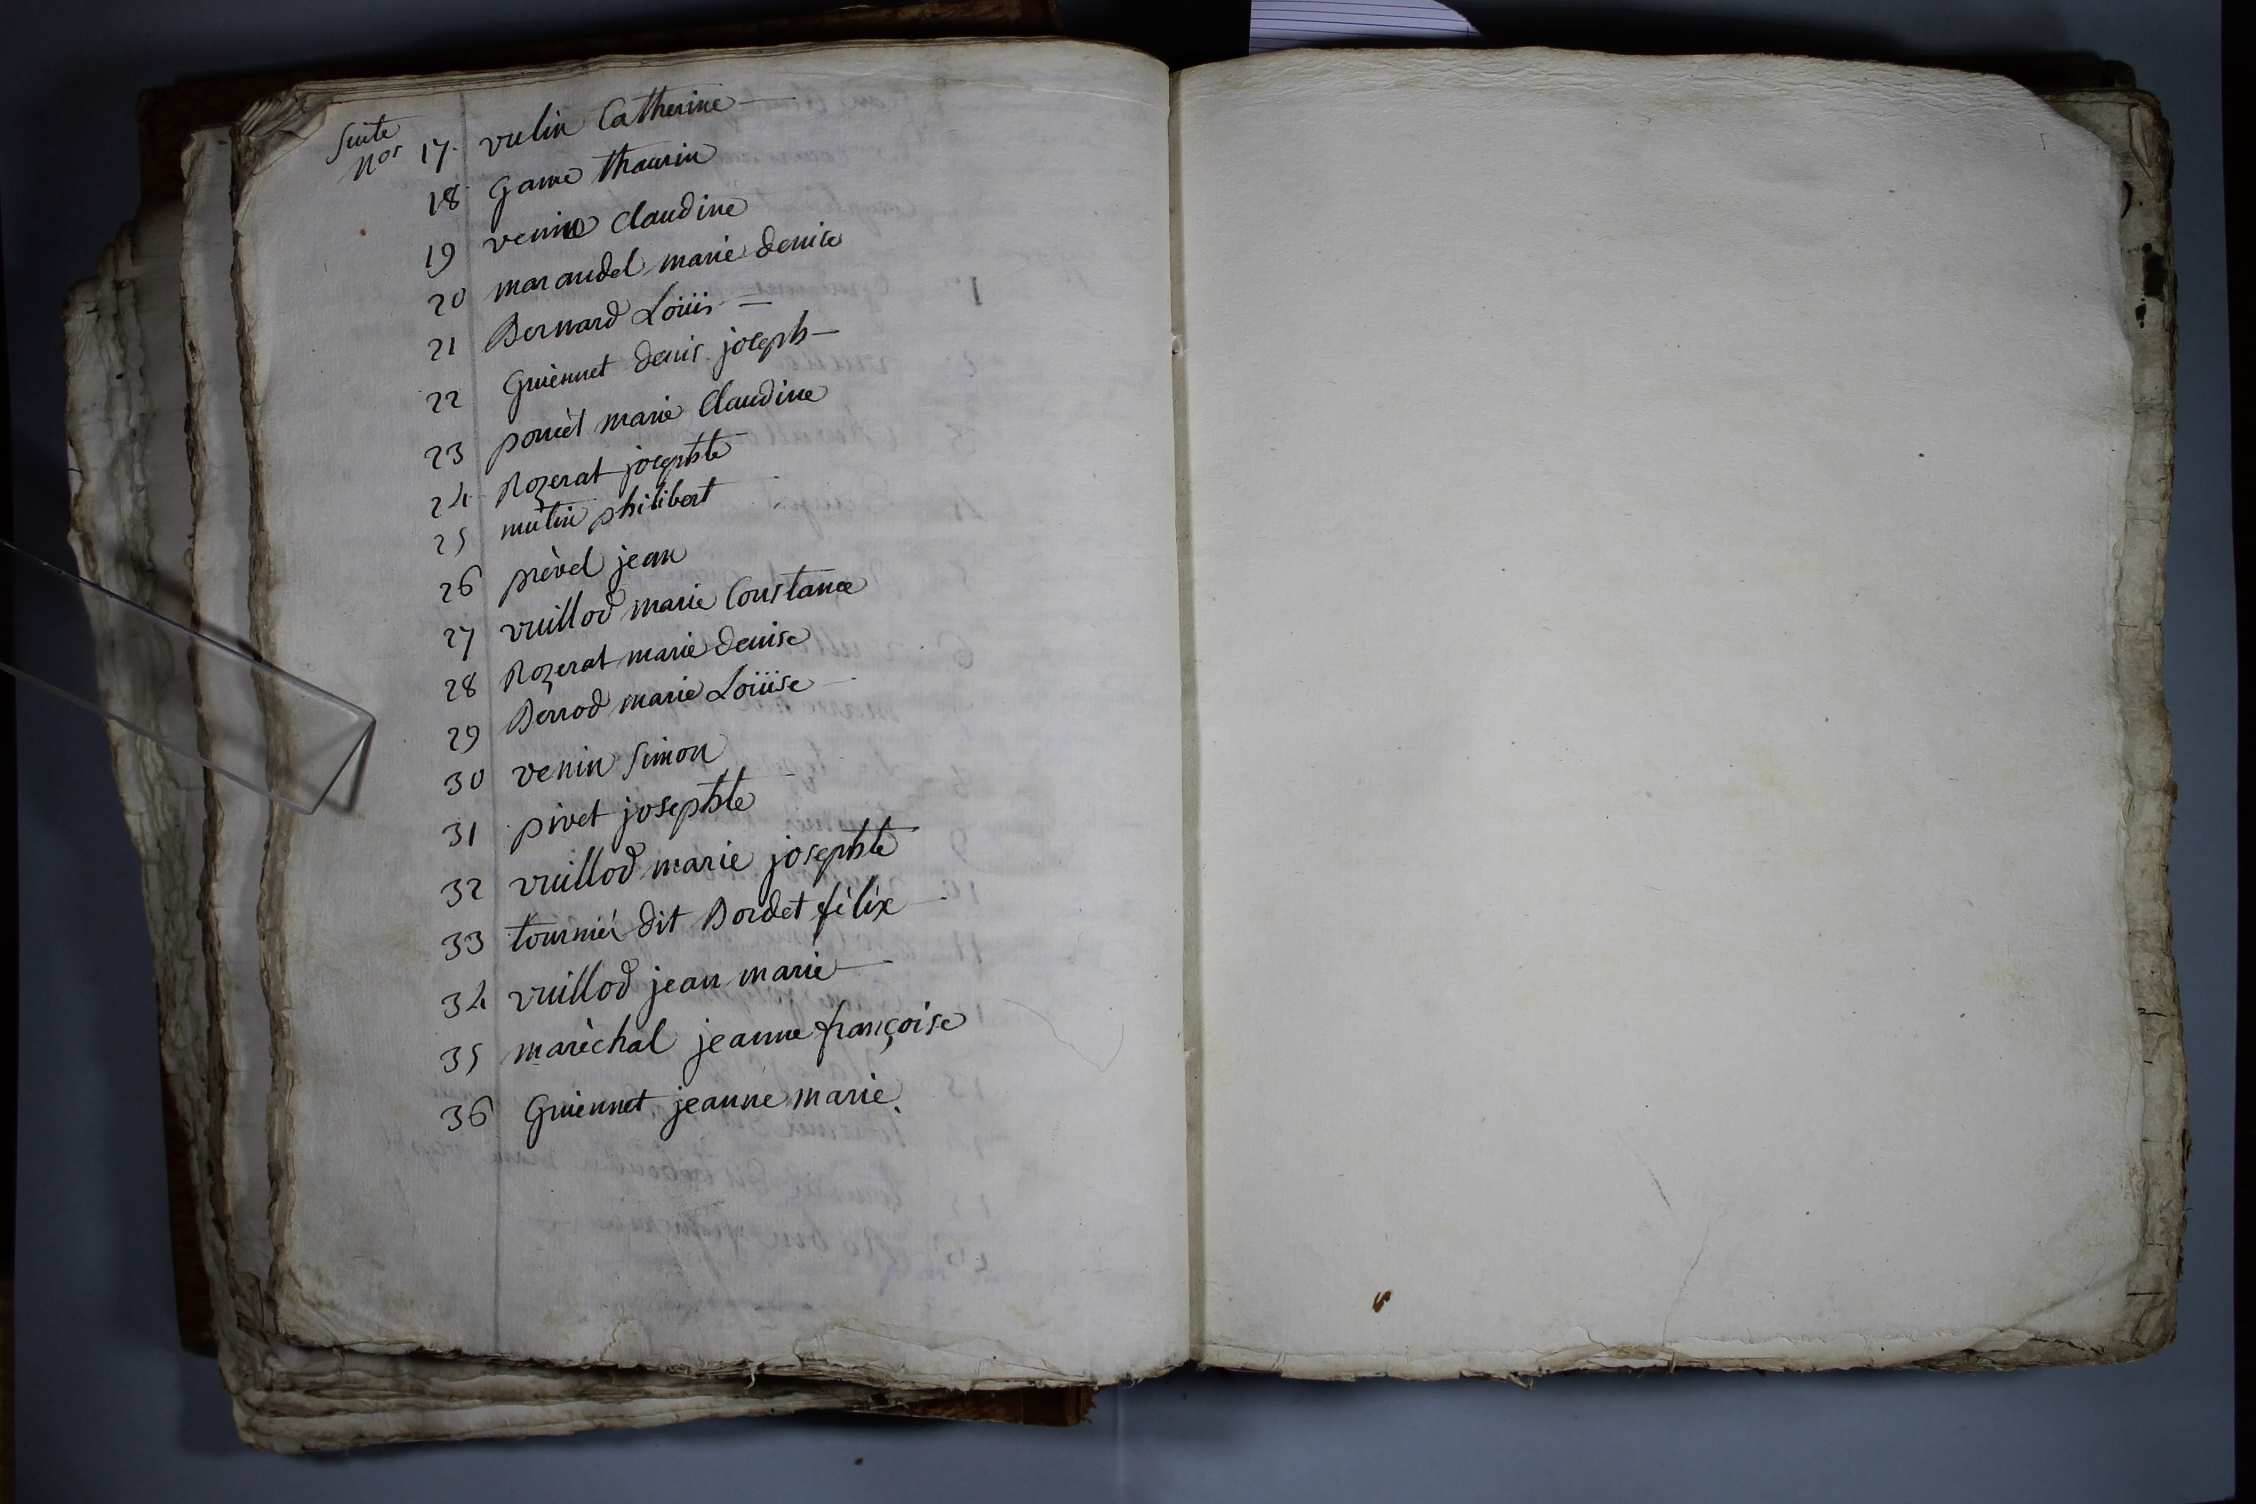 Suite
Nos 17. vulin Catherine
18 Game thaurin
19 venin Claudine
20 marandel marie denise
21 Bernard Loüis
22 Guiennet denis joseph
23 poncèt marie Claudine
24 Rozerat josephte
25 mùtin philibert
26 prèvel jean
27 vuillod marie Constance
28 Rozerat marie denise
29 Berrod marie Loüise
30 venin Simon
31 pivet josephte
32 vuillod marie josephte
33 tourniér dit Bordet félix
34 vuillod jean marie
35 maréchal jeanne françoise
36 Guiennet jeanne marie.